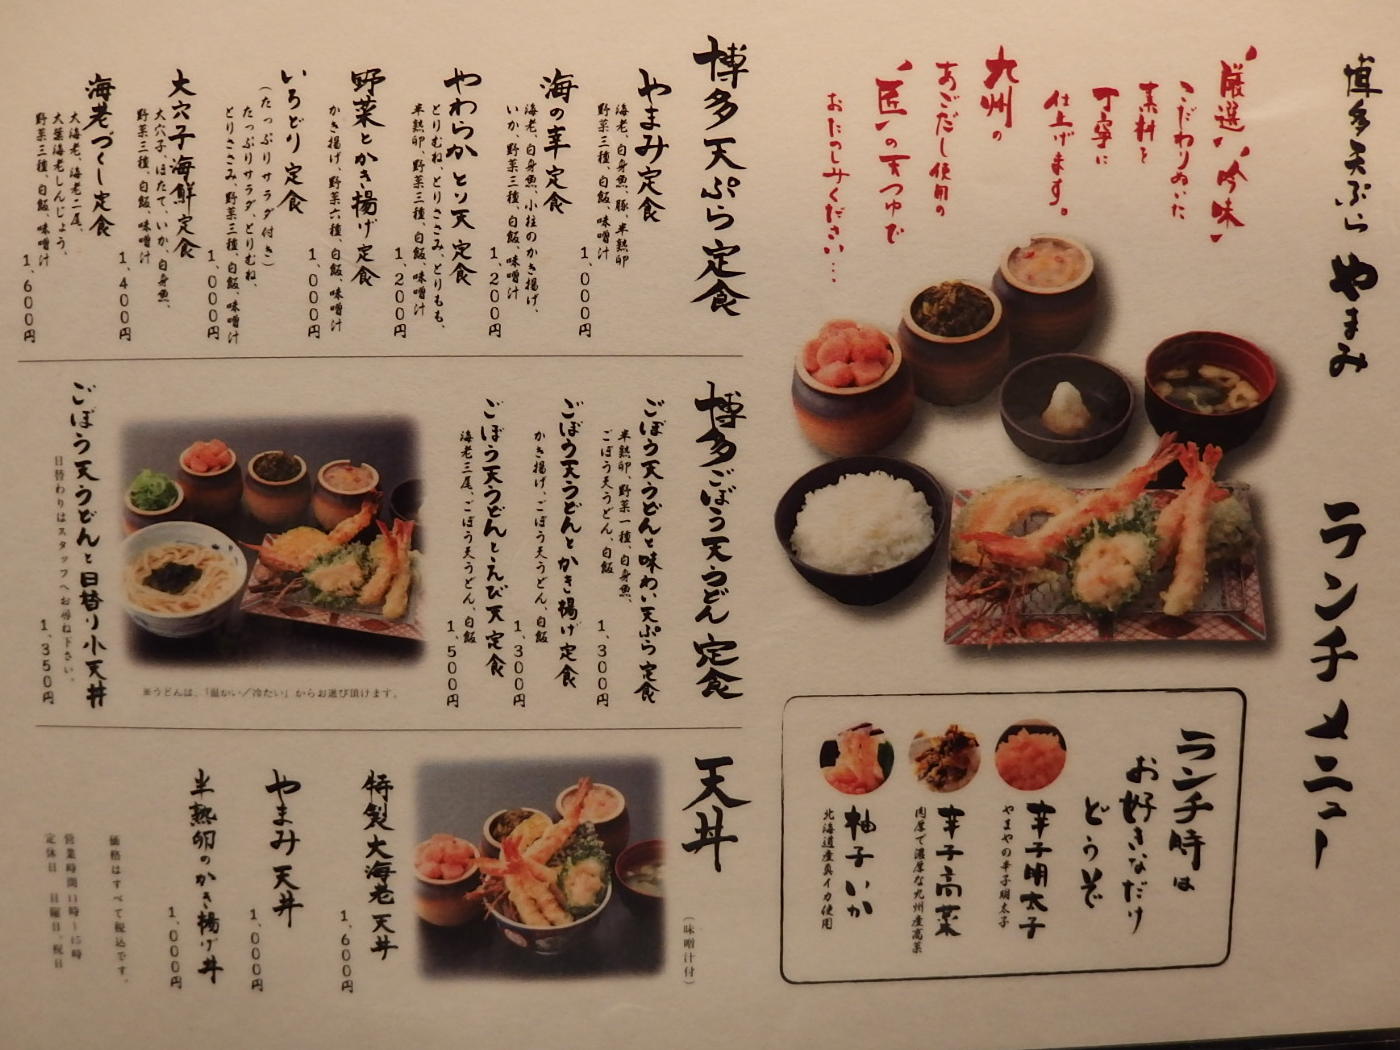 博多天ぷら やまみ ランチメニュー
"厳選"、"吟味"
こだわりぬいた
素材を
丁寧に
仕上げます。
九州の
あごだし使用の
"匠"の天つゆで
おたのしみください…
ランチ時は
お好きなだけ
どうぞ
辛子明太子
やまやの辛子明太子
辛子高菜
肉厚で濃厚な九州産高菜
柚子いか
北海道産真イカ使用
博多天ぷら定食
やまみ定食
海老、白身魚、豚、半熟卵
野菜三種、白飯、味噌汁
1,000円
海の幸定食
海老、白身魚、小柱のかき揚げ、
いか、野菜三種、白飯、味噌汁
1,200円
やわらかとり天定食
とりむね、とりささみ、とりもも、
半熟卵、野菜三種、白飯、味噌汁
1,200円
野菜とかき揚げ定食
かき揚げ、野菜六種、白飯、味噌汁
1,000円
いろどり定食
(たっぷりサラダ付き)
たっぷりサラダ、とりむね、
とりささみ、野菜三種、白飯、味噌汁
1,000円
大穴子海鮮定食
大穴子、ほたて、いか、白身魚、
野菜三種、白飯、味噌汁
1,400円
海老づくし定食
大海老、海老二尾、
大葉海老しんじょう、
野菜三種、白飯、味噌汁
1,600円
博多ごぼう天うどん定食
ごぼう天うどんと味わい天ぷら定食
半熟卵、野菜一種、白身魚、
ごぼう天うどん、白飯
1,300円
ごぼう天うどんとかき揚げ定食
かき揚げ、ごぼう天うどん、白飯
1,300円
ごぼう天うどんとえび天定食
海老三尾、ごぼう天うどん、白飯
1,500円
※うどんは、「温かい/冷たい」からお選び頂けます。
ごぼう天うどんと日替り小天丼
日替わりはスタッフへお尋ね下さい。
1,350円
天丼
(味噌汁付)
特製大海老天丼
1,600円
やまみ天丼
1,000円
半熟卵のかき揚げ丼
1,000円
価格はすべて税込です。
営業時間11時~15時
定休日 日曜日、祝日